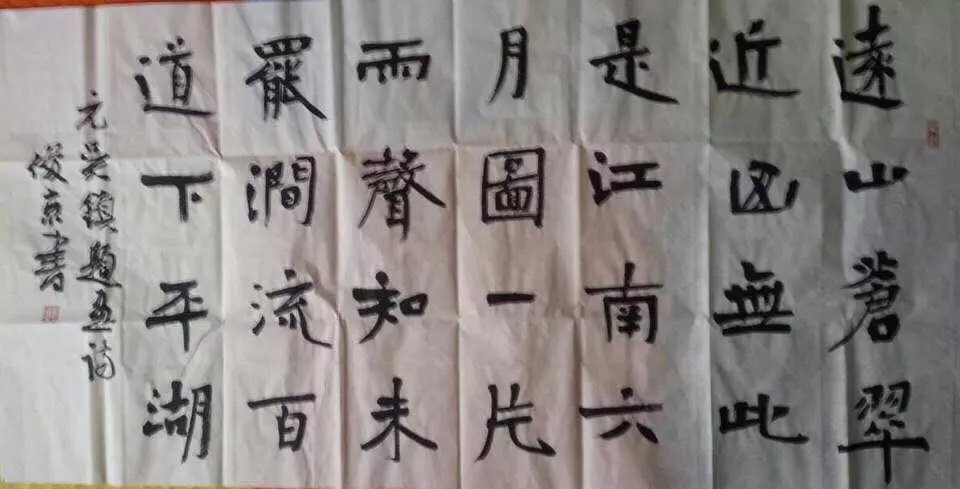 遠山蒼翠
近山無此
是江南六
月圖一片
雨聲知未
罷澗流百
道下平湖
元吴鎮題画詩
俊京書